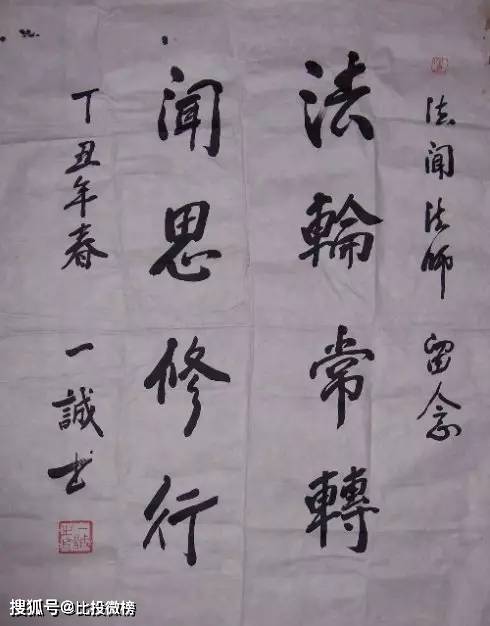 法闻法师 留念
法輪常轉
闻思修行
丁丑年春 一誠书
搜狐号@比投微榜